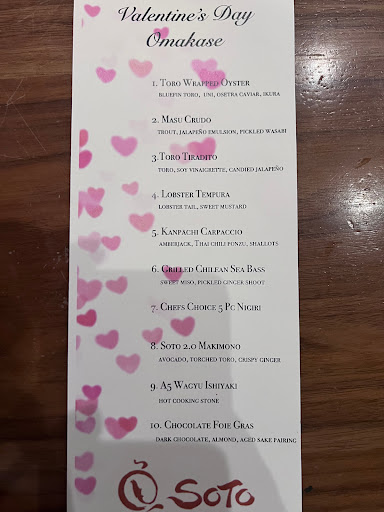 Valentine's Day
Omakase
1. Toro Wrapped Oyster
bluefin toro, uni, osetra caviar, ikura
2. Masu Crudo
trout, jalapeño emulsion, pickled wasabi
3.Toro Tiradito
toro, soy vinaigrette, candied jalapeño
4. Lobster Tempura
lobster tail, sweet mustard
5. Kanpachi Carpaccio
amberjack, Thai chili ponzu, shallots
6. Grilled Chilean Sea Bass
sweet miso, pickled ginger shoot
7. Chefs Choice 5 Pc Nigiri
8. Soto 2.0 Makimono
avocado, torched toro, crispy ginger
9. A5 Wagyu Ishiyaki
hot cooking stone
10. Chocolate Foie Gras
dark chocolate, almond, aged sake pairing
SOTO